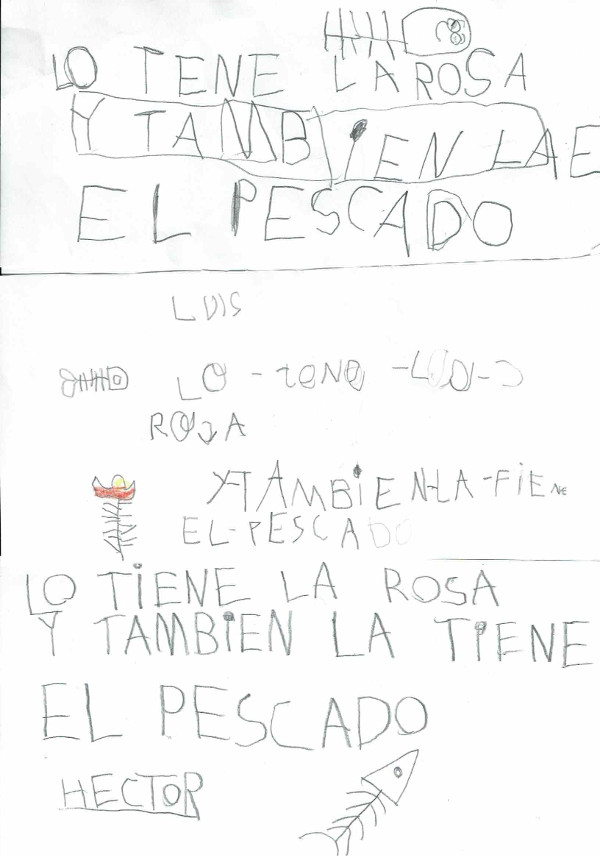 LO TENE LA ROSA
Y TAMBIEN LA E
EL PESCADO
LUIS
LO - TENO -
ROSA
Y-TAMBIEN-LA-FIENE
EL-PESCADO
LO TIENE LA ROSA
Y TAMBIEN LA TIENE
EL PESCADO
HECTOR